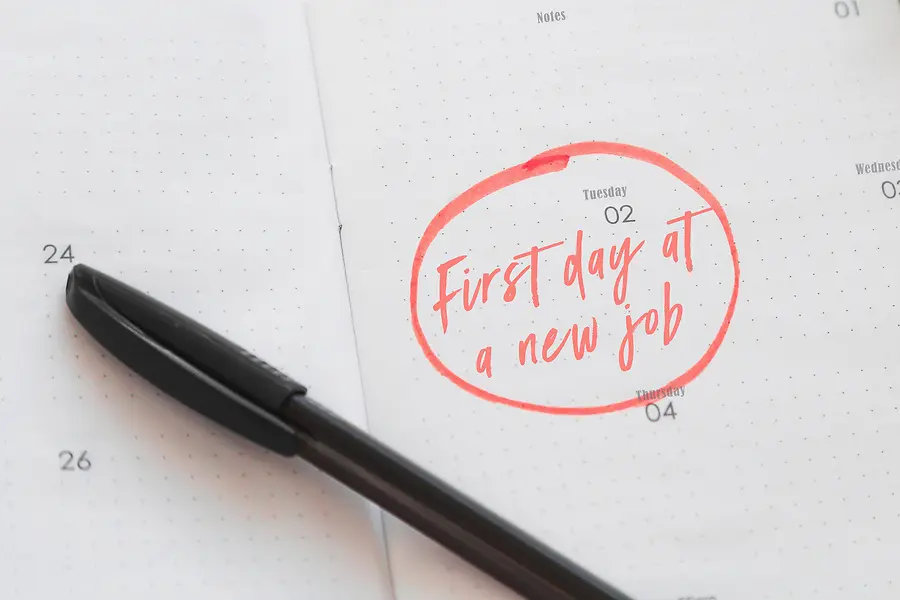 Notes
01
Tuesday
02
First day at
a new job
Thursday
04
24
26